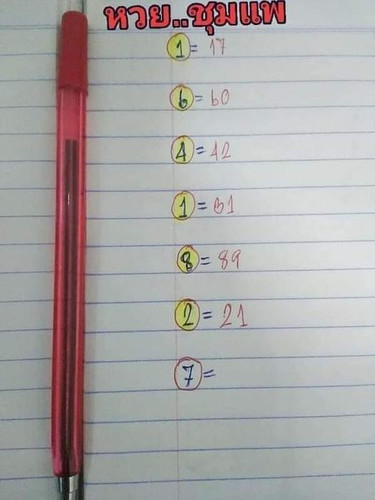 หวย..ชุมแพ
1 = 17
6 = 60
4 = 42
1 = 61
8 = 89
2 = 21
7 =